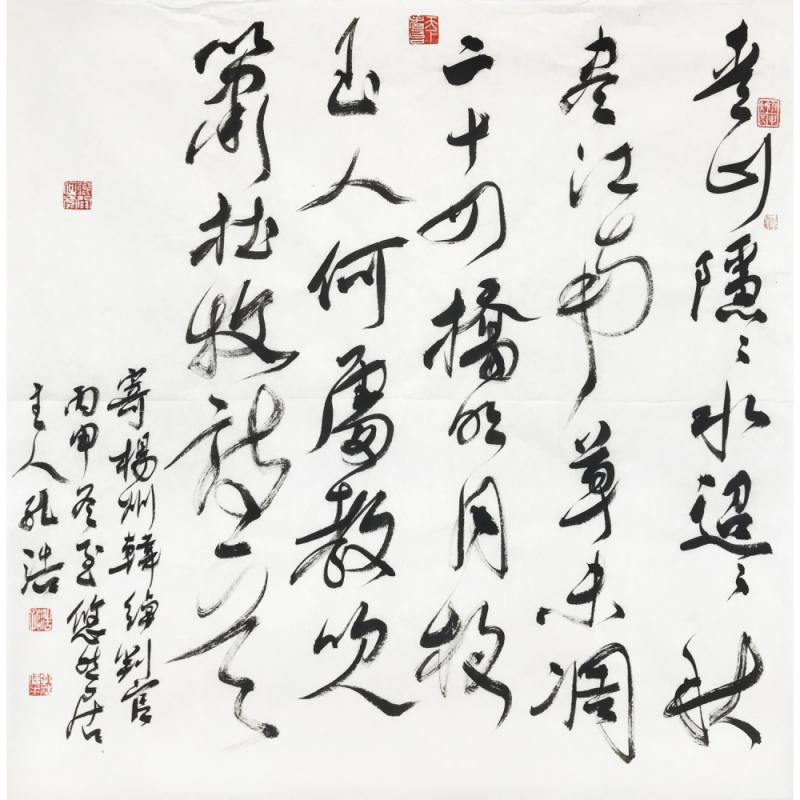 青山隱〻水迢〻秋
盡江南草未凋
二十四橋明月夜
玉人何處教吹
簫杜牧詩一首
寄楊州韓綽判官
丙申冬至悠然居
主人孔浩